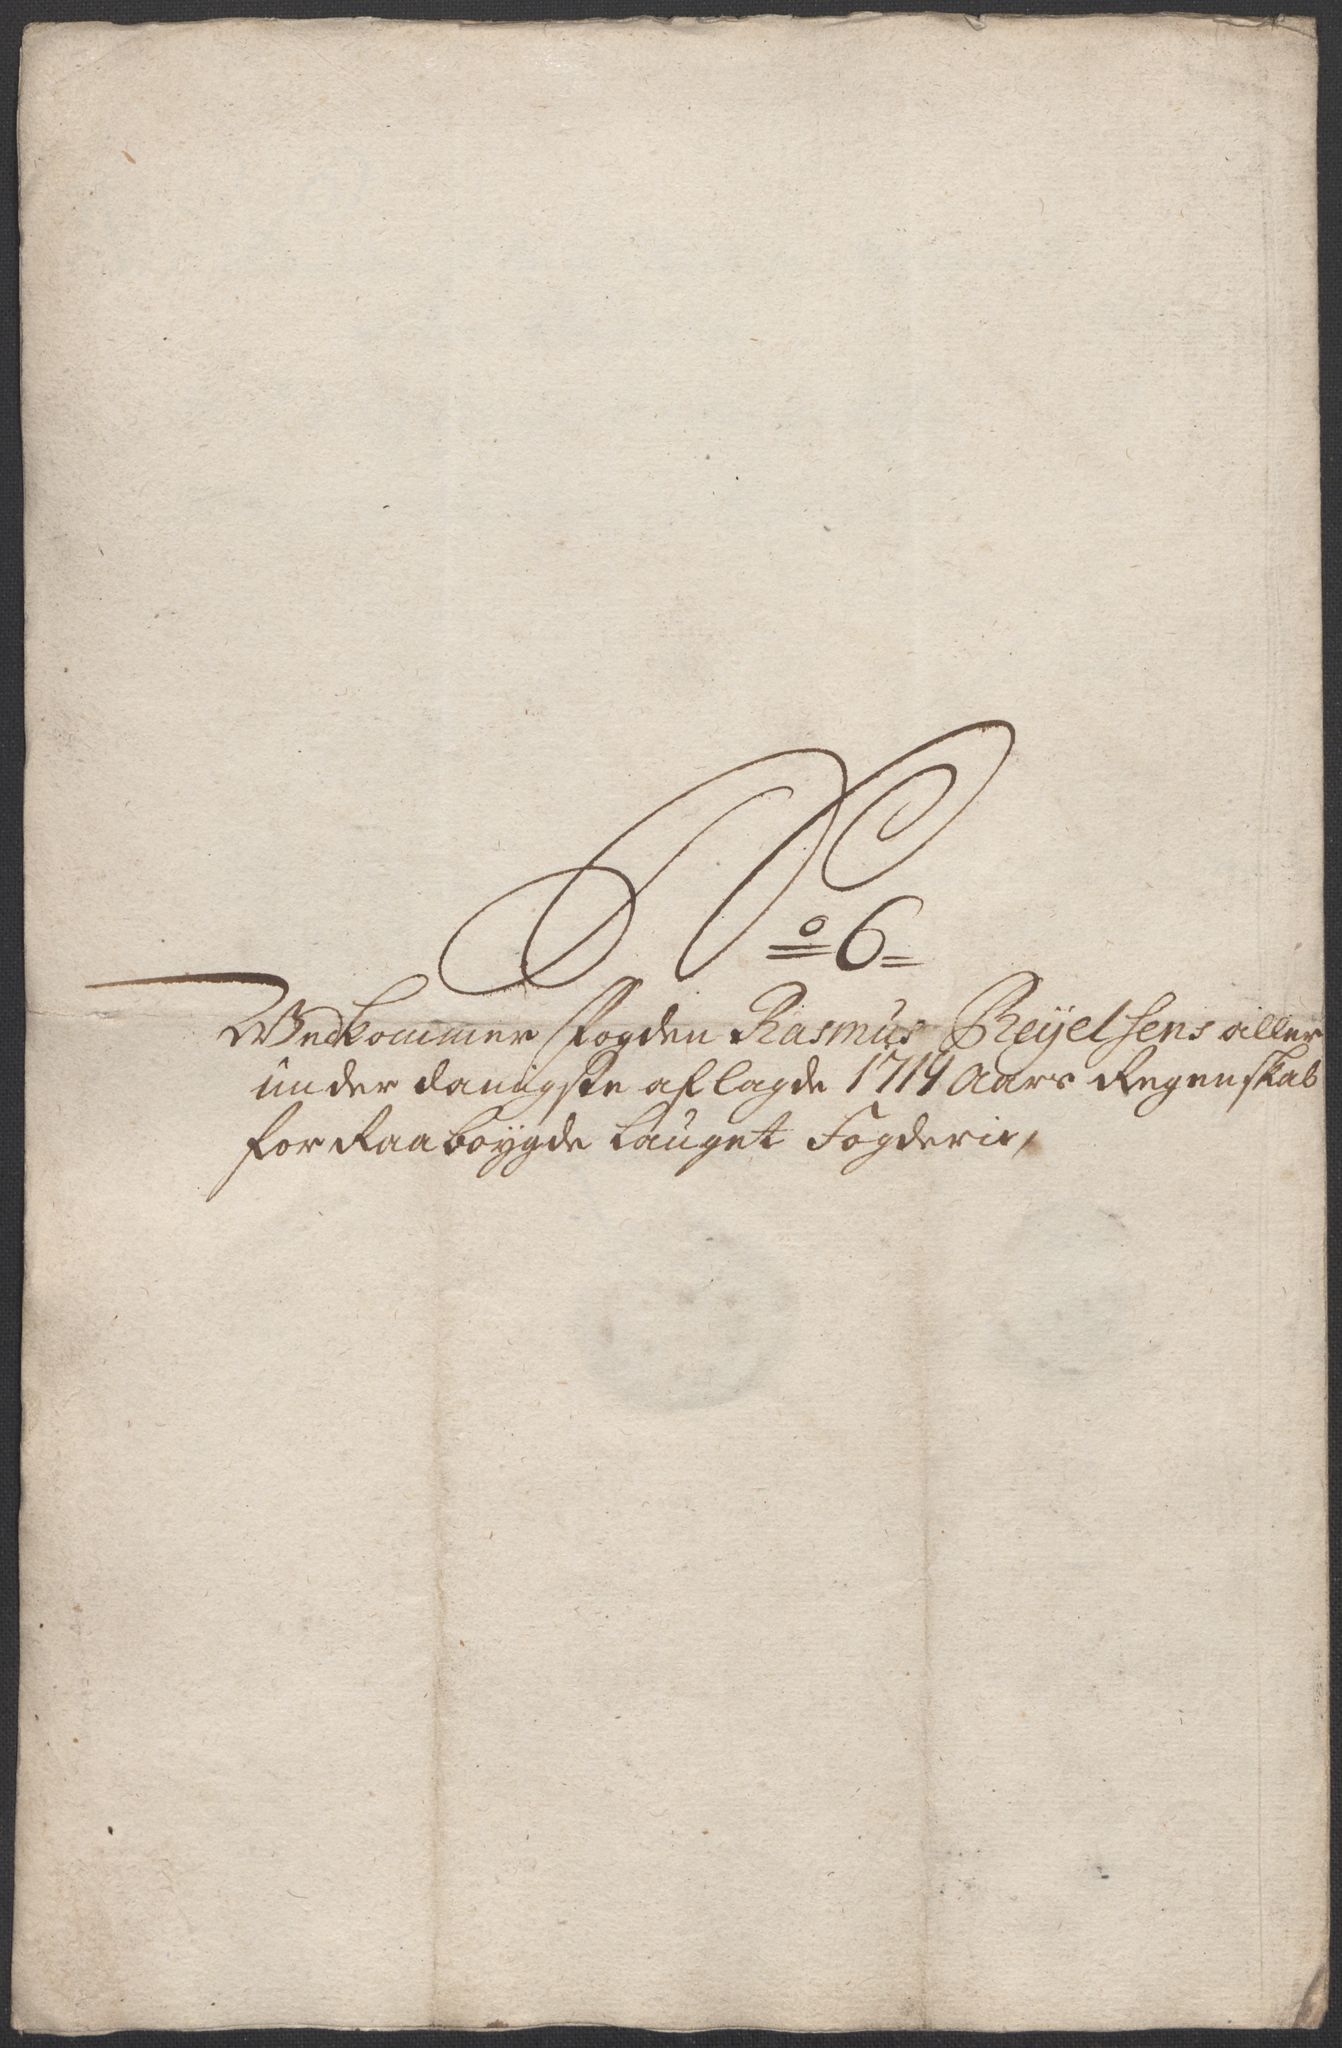 No 6
Wedkommer Fogden Rasmus Reyelsens aller
under danigste aflagde 1714 Aars Regenskab
for Raaboygde Lauget Fogderie,